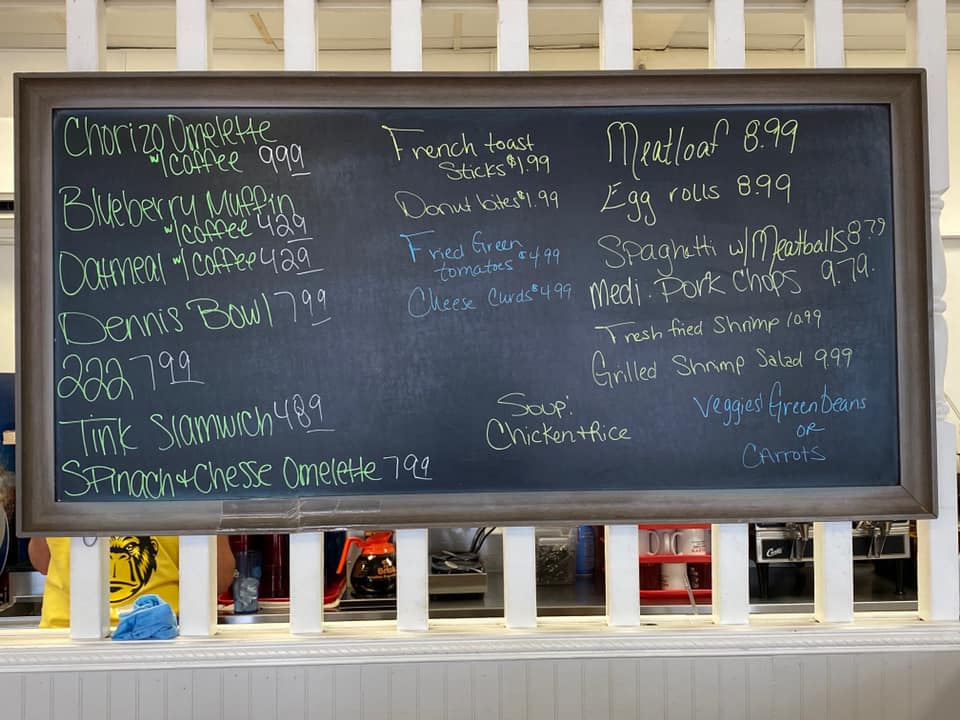 Chorizo Omelette
w/coffee 999
Blueberry Muffin
w/coffee 429
Oatmeal w/coffee 429
Dennis Bowl 799
222 799
Tink Slamwich 489
Spinach + Chesse Omelette 799
French toast
Sticks $1.99
Donut bites $1.99
Fried Green
tomatoes $4.99
Cheese Curds $4.99
Soup:
Chicken + Rice
Meatloaf 8.99
Egg rolls 8.99
Spaghetti w/Meatballs 8.79
Medi. Pork Chops 9.79.
Fresh fried Shrimp 10.99
Grilled Shrimp Salad 9.99
Veggies! Green beans
OR
CArrots